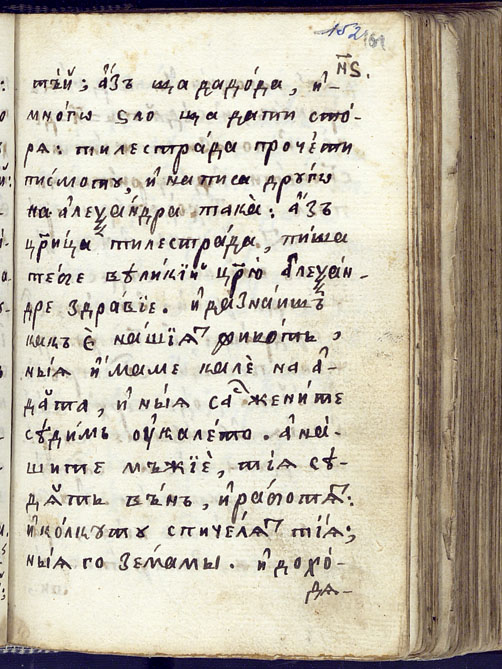 152 161
н҃ѕ.
тѣй; а҆́зъ ща дадо́да, и҆-
мно́гѡ ѕло ща дати сто́-
рѧ: тилестра́да прочѐти
писмоту, и҆ написа друго
на а҆леѯа́ндра такà: а҆́зъ
цр҃и́ца тилестра́да, пиша
тебе вѣликїй цр҃ю а҆леѯа́н-
дре здра́вїе. и҆ да знаишъ
какъ є̀ на́шїѧ фикотъ,
ны́ѧ и҆́маме калѐ на а҆-
да́та, и҆ ны́ѧ са жени́те
сѣди́мъ ѹ҆ кале́то. а҆ на́-
шите мъжїѐ, ті́ѧ сѣ-
дѧ́тъ въ́нь, и҆ работѧⷮ:
и҆ ко́лкуту спиче́лѧⷮ ті́ѧ;
ны́ѧ го зе́мамы. и҆ дохо́-
дѧ-